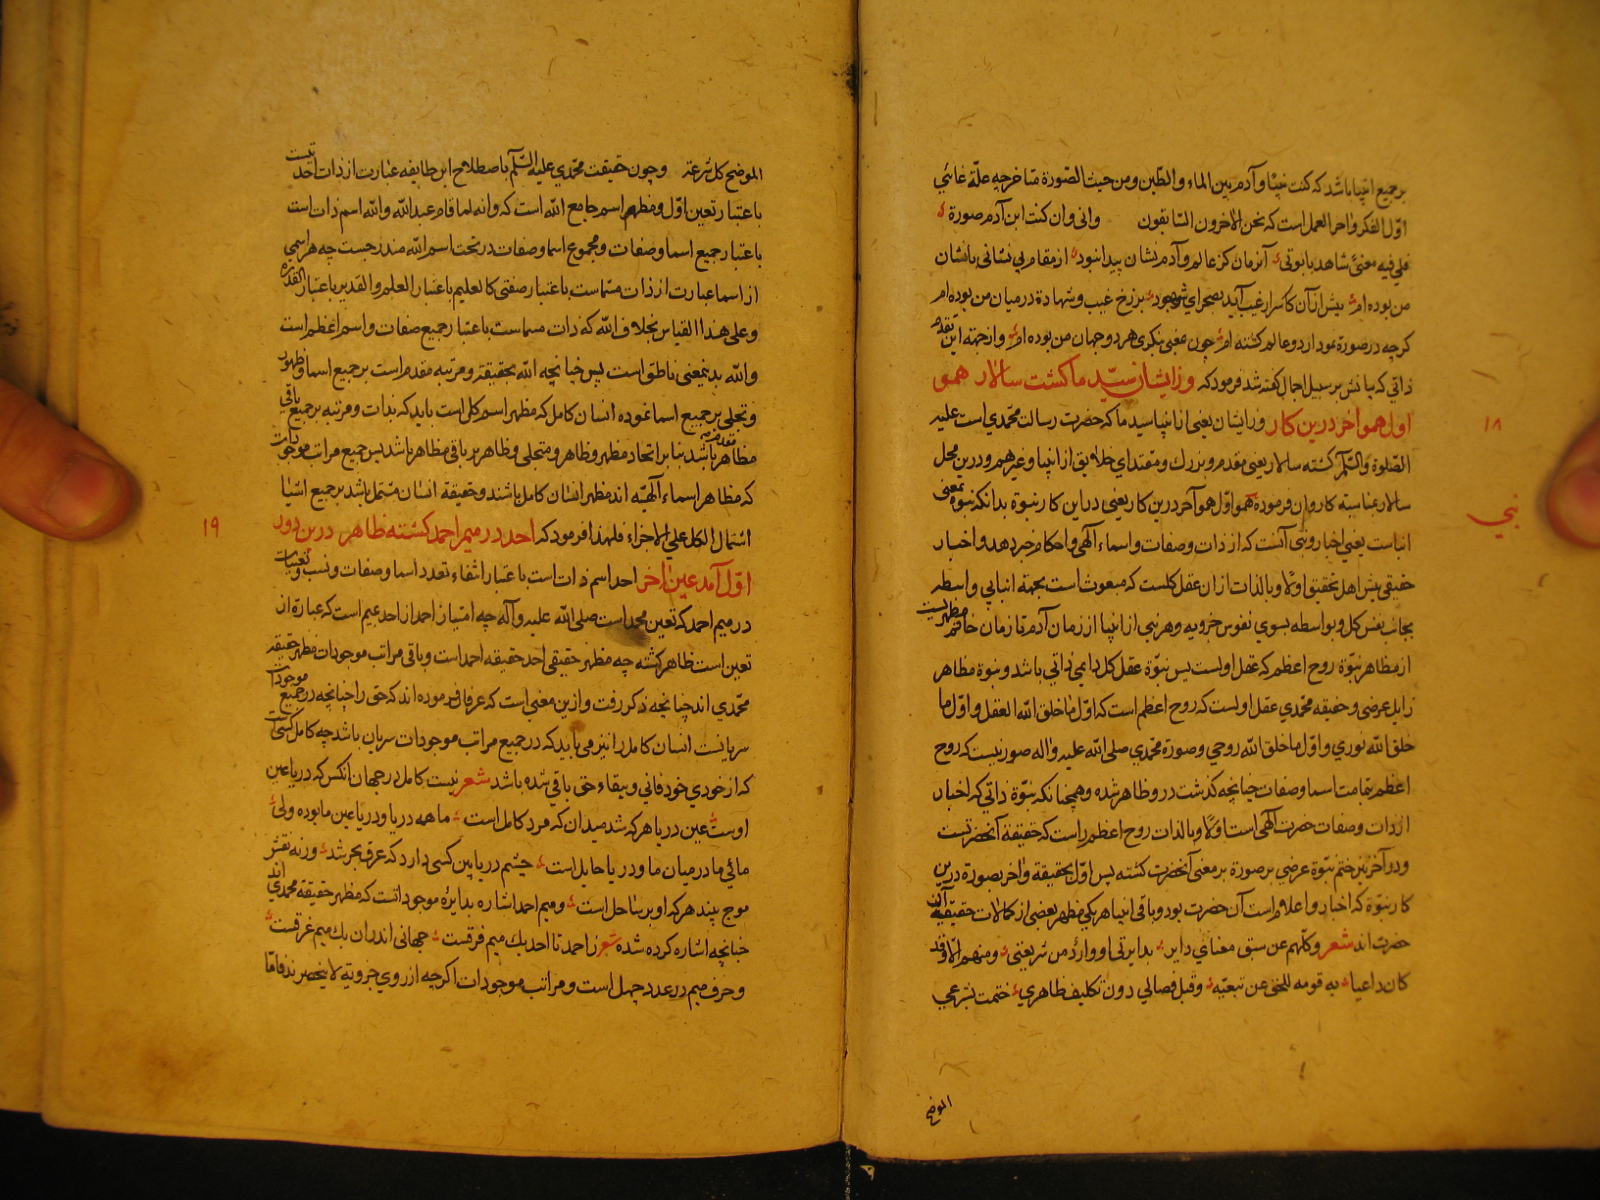 بر جمیع انبیا باشد که کنت نبیّا و آدم بین الماء و الطّین و من حیث الصّورة متاخر چه علّة غائي
اوّل الفکر و اخر العمل است که نحن الاخرون السّابقون وانی و ان کنت ابن آدم صورة
فلي فیه معنیً شاهد بابوتي آنزمان کز عالم و آدم نشان پیدا نبود از مقام بي نشانی با نشان
من بوده ام پیش از آن کاسرار غیب آید بصحرای شهود برزخ غیب و شهادة در میان من بوده ام
کرچه در صورة نمودار دو عالم کشته ام چون بمعنی بنکری هر دو جهان من بوده ام و از جهة این تقدم
ذاتي که بیانش بر سبیل اجمال کفته شد فرمود که وز ایشان سیّد ما کشت سالار همو
اول همو آخر درین کار وز ایشان یعنی از انبیا سید ما که حضرت رسالت محمّدي است علیه
۱۸
الصّلوة والسّلم کشته سالار یعني مقدم و بزرك و مقتداي خلایق از انبیا و غیرهم و درین محل
سالار بمناسبة کاروان فرموده همو اوّل همو آخر درین کار یعنی در این کار نبوّة بدانکه نبوّة بمعنی
نبي
انباست یعني اخبار و نبی آنست که از ذات و صفات و اسماء آلهي و احکام خبر دهد و اخبار
حقیقي پیش اهل تحقیق اولا و بالذات از ان عقل کلست که مبعوث است بجهة انبایي واسطه
بجانب نفس کل و بواسطه بسوي نفوس جزویه و هر نبي از انبیا از زمان آدم تا زمان خاتم مظهریست
از مظاهر نبوّة روح اعظم که عقل اولست پس نبوّة عقل کل دایمي ذاتي باشد و نبوة مظاهر
زایل عرضي و حقیقه محمّدي عقل اولست که روح اعظم است که اوّل ما خلق الله العقل و اوّل ما
خلق الله نوري و اوّل ما خلق الله روحي و صورة محمّدي صلی الله علیه و اله صورتیست که روح
اعظم بتمامت اسما و صفات چنانچه کذشت در و ظاهر شده و همچنانکه نبوّة ذاتي که اخبار
از ذات و صفات حضرت آلهي است اوّلا و بالذات روح اعظم راست که حقیقة آنحضرتست
و در آخر نیز ختم نبوّة عرضي بر صورة بر معنی آنحضرت کشته پس اوّل بحقیقة و اخر بصورة درین
کار نبوّة که اخبار و اعلام است آن حضرت بود و باقی انبیا هر یکي مظهر بعضی از کمالات حقیقیه آن
حضرت اند شعر و کلّهم عن سبق معناي دایر بدایرتي او وارد من شریعتي و منهم الّا و قد
کان داعیا به قومه للحق عن تبعیّه و قبل فصالي دون تکلیف ظاهري ختمت بشرعي
الموضح
الموضح کل شرعة و چون حقیقت محمّدي علیه السّلم باصطلاح این طایفه عبارت از ذات احدیتست
باعتبار تعین اوّل و مظهر اسم جامع الله است که وانه لما قام عبد الله و الله اسم ذات است
باعتبار جمیع اسما و صفات و مجموع اسما و صفات در تحت اسم الله مندرجست چه هر اسمي
از اسما عبارت از ذات مسماست باعتبار صفتی کالعلیم باعتبار العلم و القدیر باعتبار القدرة
وعلی هذا القیاس بخلاف الله که ذات مسماست باعتبار جمیع صفات و اسم اعظم است
والله بدینمعنی ناطق است پس چنانچه الله بحقیقة و مرتبه مقدم است بر جمیع اسما و ظهور
و تجلی بر جمیع اسما نموده انسان کامل که مظهر اسم کلی است باید که بذات و مرتبه بر جمیع باقي
مظاهر مقدم باشد بنا بر اتحاد مظهر و ظاهر و متجلی و ظاهر بر باقي مظاهر باشد پس جمیع مراتب موجودات
که مظاهر اسماء آلهیّه اند مظهر انسان کامل باشند و حقیقة انسان مشتمل باشد بر جمیع اشیا
اشتمال الکل علي الاجزاء فلهذا فرمود که احد در میم احمد کشته ظاهر درین دور
۱۹
اوّل آمد عین آخر احد اسم ذات است باعتبار انتفاء تعدد اسما و صفات و نسب و تعینات
در میم احمد که تعین محمد است صلی الله علیه و آله چه امتیاز احمد از احد بمیم است که عبارة از
تعین است ظاهر کشته چه مظهر حقیقي احد حقیقه احمد است و باقي مراتب موجودات مظهر حقیقة
محمّدي اند چنانچه ذکر رفت و ازین معنی است که عرفا فرموده اند که حق را چنانچه در جمیع موجودات
سریانست انسان کامل را نیز می باید که در جمیع مراتب موجودات سریان باشد چه کامل کسی است
که از خودي خود فاني و ببقاء حق باقي شده باشد شعر نیست کامل در جهان انکس که دریا عین
اوست عین دریا هر که شد میدان که مرد کامل است ما همه دریا و دریا عین ما بوده ولی
مائي ما در میان ما و دریا حایل است چشم دریا بین کسی دارد که غرق بحر شد ورنه نقش
موج بیند هر که او بر ساحل است و میم احمد اشاره بدایرة موجوداتست که مظهر حقیقة محمدي اند
چنانچه اشاره کرده شده شعر ز احمد تا احد یك میم فرقست جهانی اندران یك میم غرقست
و حرف میم در عدد چهل است و مراتب موجودات اکرچه از روي جزویة لا ینحصرند فاما